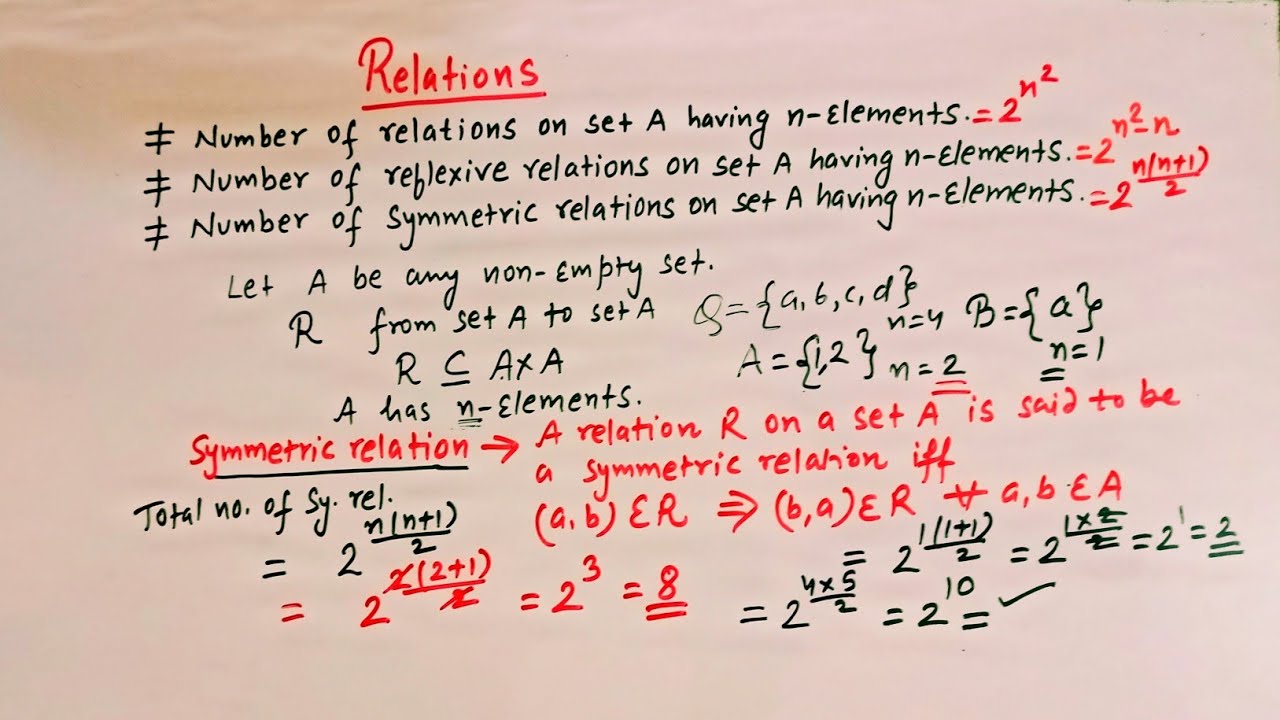 Relations
≠ Number of relations on set A having n-Elements. = 2^{n^2}
≠ Number of reflexive relations on set A having n-Elements. = 2^{n^2-n}
≠ Number of Symmetric relations on set A having n-Elements. = 2^{\frac{n(n+1)}{2}}
Let A be any non-empty set.
R from set A to set A
Q = {a, b, c, d} n=4 B = {a}
R ⊆ A×A
A = {1,2} n = 2 n=1
A has n-Elements.
Symmetric relation → A relation R on a set A is said to be
a symmetric relation iff
(a,b) ∈ R ⇒ (b,a) ∈ R ∀ a,b ∈ A
Total no. of Sy. rel.
= 2^{\frac{n(n+1)}{2}}
= 2^{\frac{1(1+1)}{2}} = 2^{\frac{1×2}{2}} = 2^1 = 2
= 2^{\frac{2(2+1)}{2}} = 2^3 = 8
= 2^{\frac{4×5}{2}} = 2^{10} = ✓